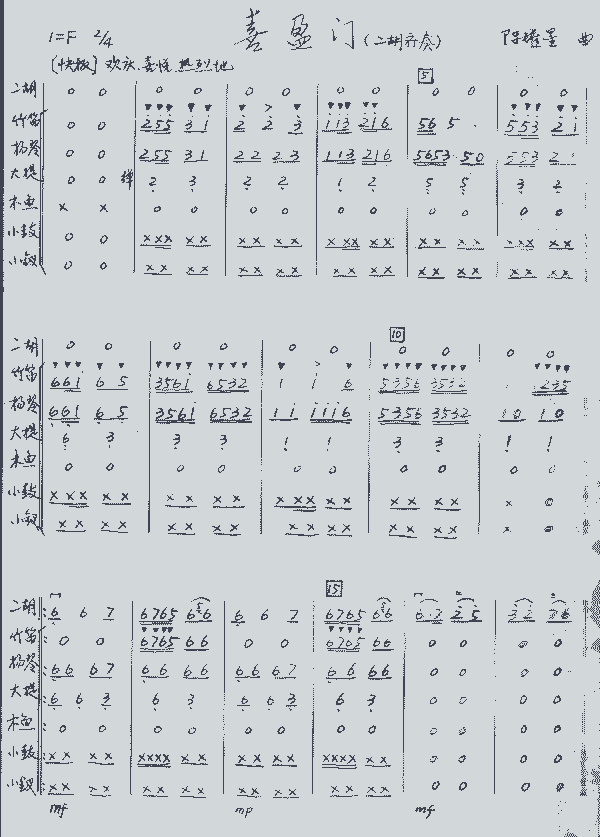 喜盈门(二胡齐奏)
1=F 2/4
曲
[快板] 欢庆、喜悦、热烈地
5
二胡 0 0 | 0 0 | 0 0 | 0 0 | 0 0 | 0 0
竹笛 0 0 | 255 31 | 2 2 3 | 113 216 | 56 5 | 553 21
扬琴 0 0 | 255 31 | 22 23 | 113 216 | 5653 50 | 553 2
大提 0 0 | 2 3 | 2 2 | 1 2 | 5 5 | 3 2
木鱼 x x | 0 0 | 0 0 | 0 0 | 0 0 | 0 0
小鼓 0 0 | xxx xx | xx xx | x xx xx | xx xx | xxx xx
小钗 0 0 | xx xx | xx xx | xx xx | xx xx | xx xx
10
二胡 0 0 | 0 0 | 0 0 | 0 0 | 0 0
竹笛 661 6 5 | 3561 6532 | 1 1 6 | 5356 3532 | 1235
扬琴 661 6 5 | 3561 6532 | 11 1116 | 5356 3532 | 10 10
大提 6 3 | 3 3 | 1 1 | 3 3 | 1 1
木鱼 0 0 | 0 0 | 0 0 | 0 0 | 0 0
小鼓 xxx xx | xx xx | xxx xx | xx xx | x 0
小钗 xx xx | xx xx | xx xx | xx xx | x 0
15
二胡 6 6 7 | 6765 66 | 6 6 7 | 6765 66 | 25 | 32 76
竹笛 0 0 | 6765 66 | 0 0 | 6765 66 | 0 0 | 0 0
扬琴 66 67 | 66 66 | 66 67 | 66 66 | 0 0 | 0 0
大提 6 6 3 | 6 3 | 6 6 3 | 6 3 | 0 0 | 0 0
木鱼 0 0 | 0 0 | 0 0 | 0 0 | 0 0 | 0 0
小鼓 xx xx | xxxx xx | xx xx | xxxx xx | 0 0 | 0 0
小钗 xx xx | xx xx | xx xx | xx xx | 0 0 | 0 0
mf mp mf